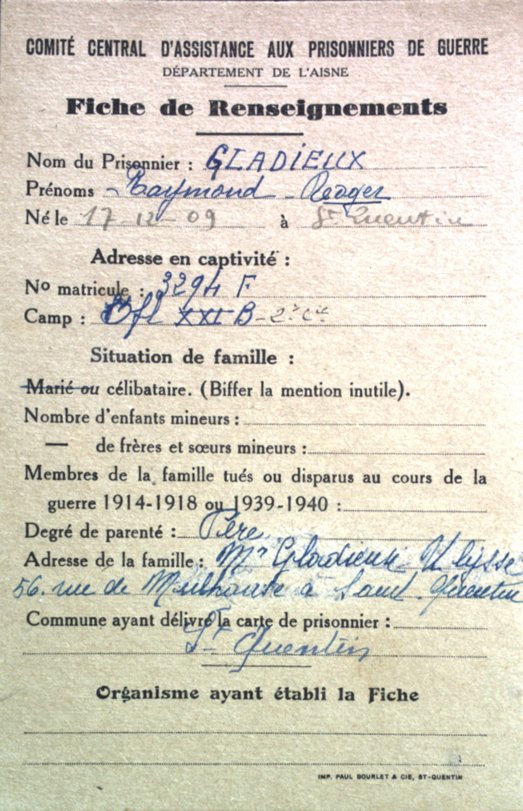 COMITÉ CENTRAL D'ASSISTANCE AUX PRISONNIERS DE GUERRE
DÉPARTEMENT DE L'AISNE
Fiche de Renseignements
Nom du Prisonnier : GLADIEUX
Prénoms - Raymond - Roger
Né le 17-12-09 à St Quentin
Adresse en captivité :
No matricule : 3294 F
Camp : Ofl XXI B - 2e Cie
Situation de famille :
Marié ou célibataire. (Biffer la mention inutile).
Nombre d'enfants mineurs :
— de frères et sœurs mineurs :
Membres de la famille tués ou disparus au cours de la
guerre 1914-1918 ou 1939-1940 :
Degré de parenté : Père
Adresse de la famille : Mr Gladieux Ulysse
56. rue de Mulhouse à Saint-Quentin
Commune ayant délivré la carte de prisonnier :
St Quentin
Organisme ayant établi la Fiche
IMP. PAUL BOURLET & CIE, ST-QUENTIN